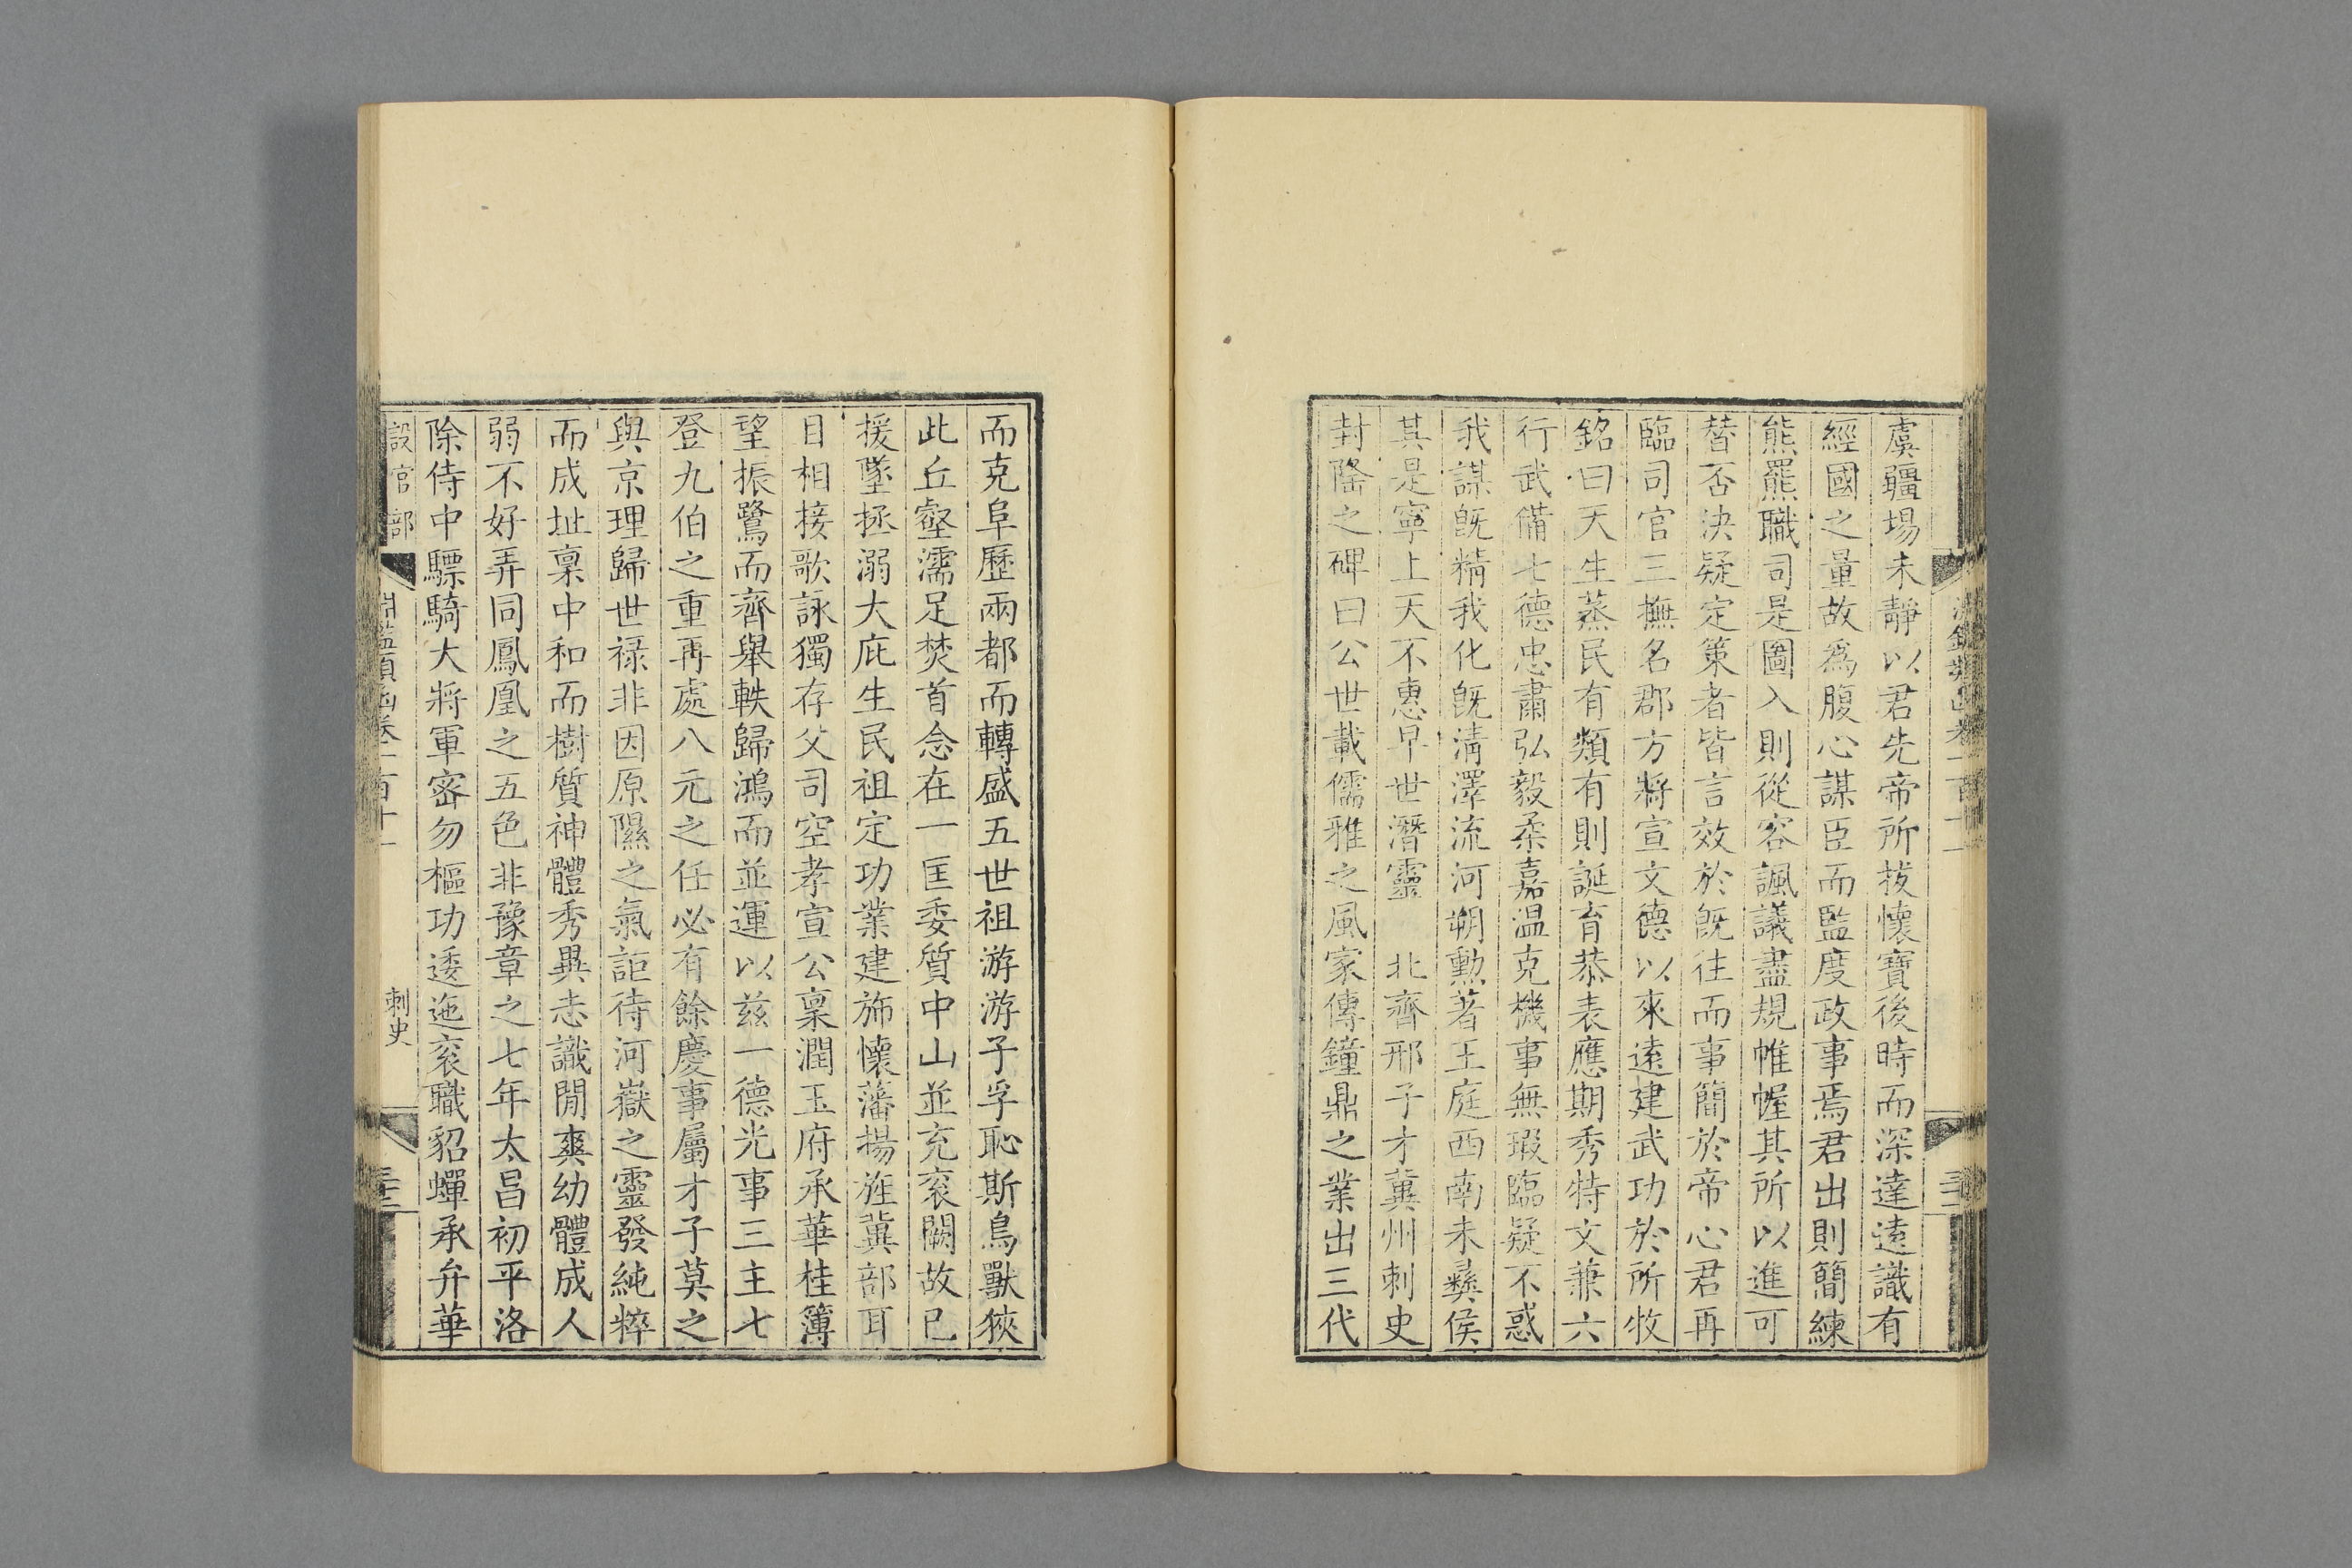 虞疆場未靜以君先帝所拔懷寶後時而深達遠識有
經國之量故爲腹心謀臣而監度政事焉君出則簡練
熊羆職司是圖入則從容諷議盡規帷幄其所以進可
替否決疑定策者皆言效於旣往而事簡於帝心君再
臨司官三撫名郡方將宣文德以來遠建武功於所牧
銘曰天生蒸民有類有則誕育恭表應期秀特文兼六
行武備七德忠肅弘毅柔嘉温克機事無瑕臨疑不惑
我謀旣精我化旣淸澤流河朔勳著王庭西南未彝侯
其是寧上天不惠早世潛靈 北齊邢子才冀州刺史
封隆之碑曰公世載儒雅之風家傳鐘鼎之業出三代
而克阜歷兩都而轉盛五世祖游游子孚恥斯鳥獸狹
此丘壑濡足焚首念在一匡委質中山並充衮闕故已
援墜拯溺大庇生民祖定功業建旆懷藩揚旌冀部耳
目相接歌詠獨存父司空孝宣公稟潤玉府承華桂簿
望振鷺而齊舉軼歸鴻而並運以兹一德光事三主七
登九伯之重再處八元之任必有餘慶事屬才子莫之
與京理歸世禄非因原隰之氣詎待河嶽之靈發純粹
而成址稟中和而樹質神體秀異志識閒爽幼體成人
弱不好弄同鳳凰之五色非豫章之七年太昌初平洛
除侍中驃騎大將軍密勿樞功逶迤衮職貂蟬承弁華
設官部
淵鑑類函卷一百十一
刺史